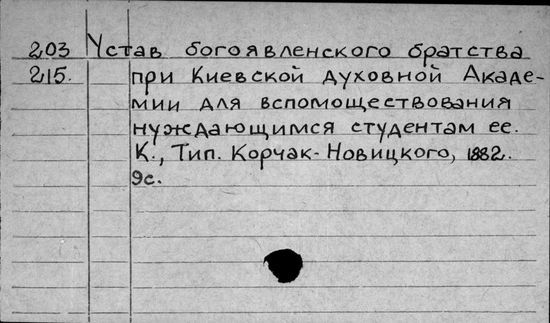 203 Устав богоявленского братства
215. при Киевской духовной Акаде-
мии для вспомоществования
нуждающимся студентам ее.
К., Тип. Корчак-Новицкого, 1882.
9с.